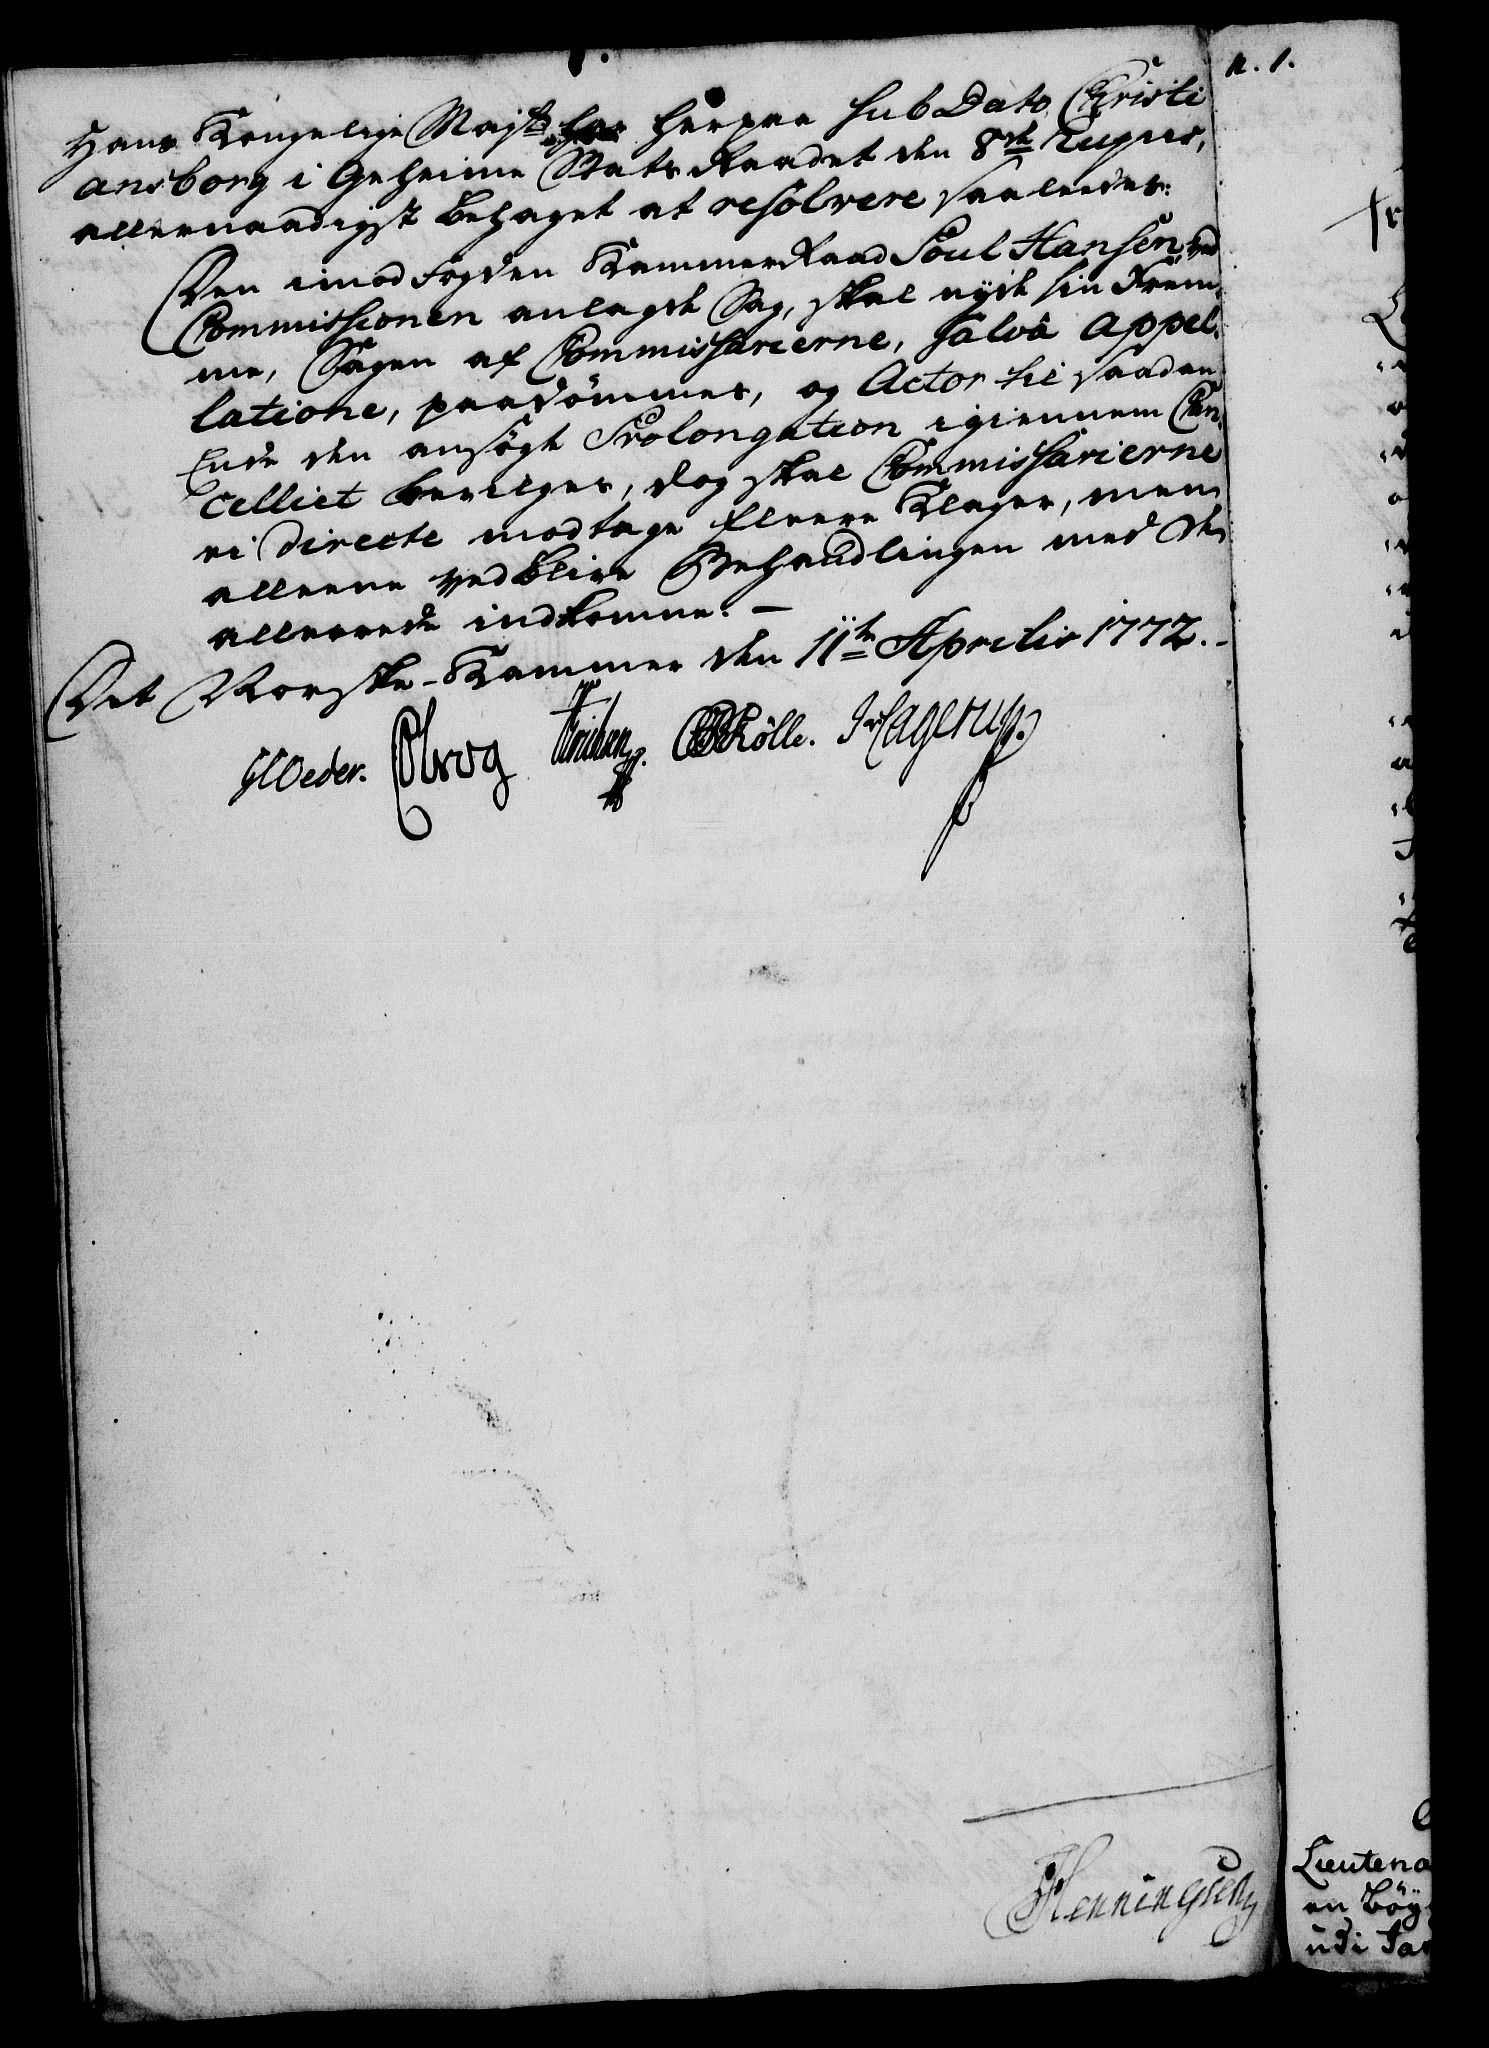 Hans Kongelige Majst. har herpaa sub Dato Christi
ansborg i Geheime Stats Raadet den 8de Ejusd,
allernaadigst behaget at resolvere saaledes:
Den imod Fogden KammerRaad Poul Hansen ved
Commissionen anlagde Sag, skal nyde sin Frem,
me, Sagen af Commissarierne, salvâ appel,
latione, paadömmes, og Actor til saadan
Ende den ansögte Prolongation igiennem Can,
celliet bevilges, dog skal Commissarierne
ei directe modtage fleere Klager, men
alleene vedblive Behandlingen med de
allereede indkomne. —
Det Norske-Kammer den 11te Aprilis 1772.-
GCOeder. Kölle. Hagerup.
Henningsen
n. 1.
Lieutena
en Böÿ
udi